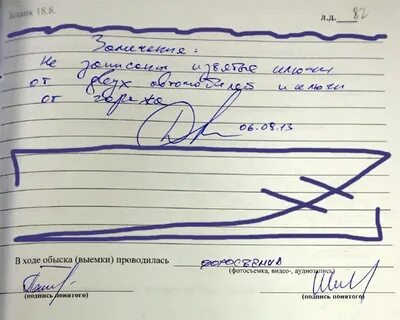 Бланк 18.8.
л.д. 82
Замечения:
Не записаны изъятые ключи
от двух автомобилей и ключи
от гаража
06.08.13
В ходе обыска (выемки) проводилась фотосъемка
(фотосъемка, видео-, аудиозапись)
(подпись понятого) (подпись понятого)